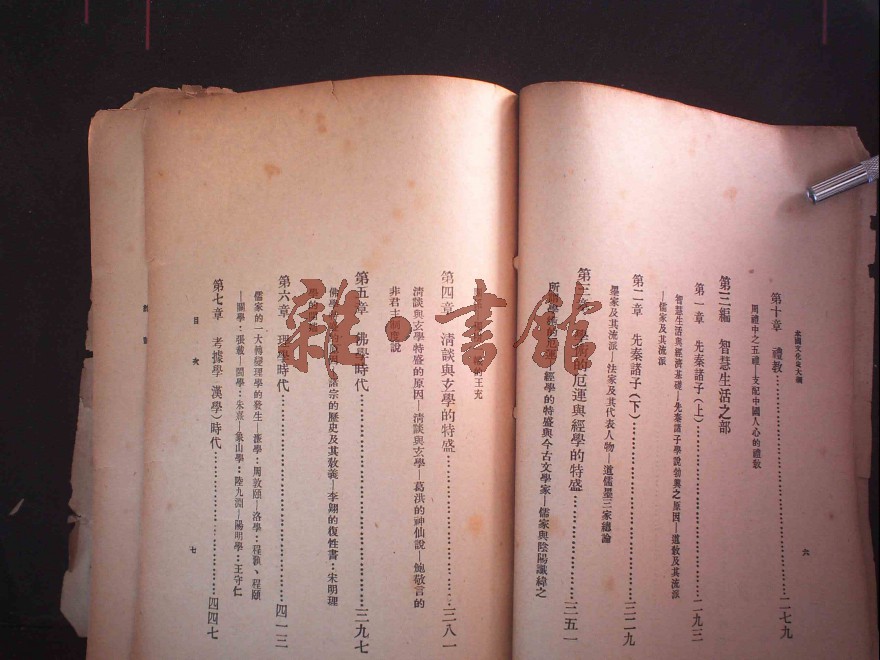 本國文化史大綱
六
第十章 禮教……二七九
周禮中之五禮—支配中國人心的禮教
第三編 智慧生活之部
第一章 先秦諸子(上)……二九三
智慧生活與經濟基礎—先秦諸子學說勃興之原因—道教及其流派
—儒家及其流派
第二章 先秦諸子(下)……三二九
墨家及其流派—法家及其代表人物—道儒墨三家總論
第三章 學術的厄運與經學的特盛……三五一
所謂學術的厄運—經學的特盛與今古文學家—儒家與陰陽讖緯之
的王充
第四章 清談與玄學的特盛……三八一
清談與玄學特盛的原因—清談與玄學—葛洪的神仙說—鮑敬言的
非君主制度說
第五章 佛學時代……三九七
佛學 諸宗的歷史及其教義—李翺的復性書:宋明理
學的開始
第六章 理學時代……四一三
儒家的一大轉變理學的發生—濂學:周敦頤—洛學:程顥、程頤
—關學:張載—閩學:朱熹—象山學:陸九淵—陽明學:王守仁
第七章 考據學(漢學)時代……四四七
目次
七
雜·書館